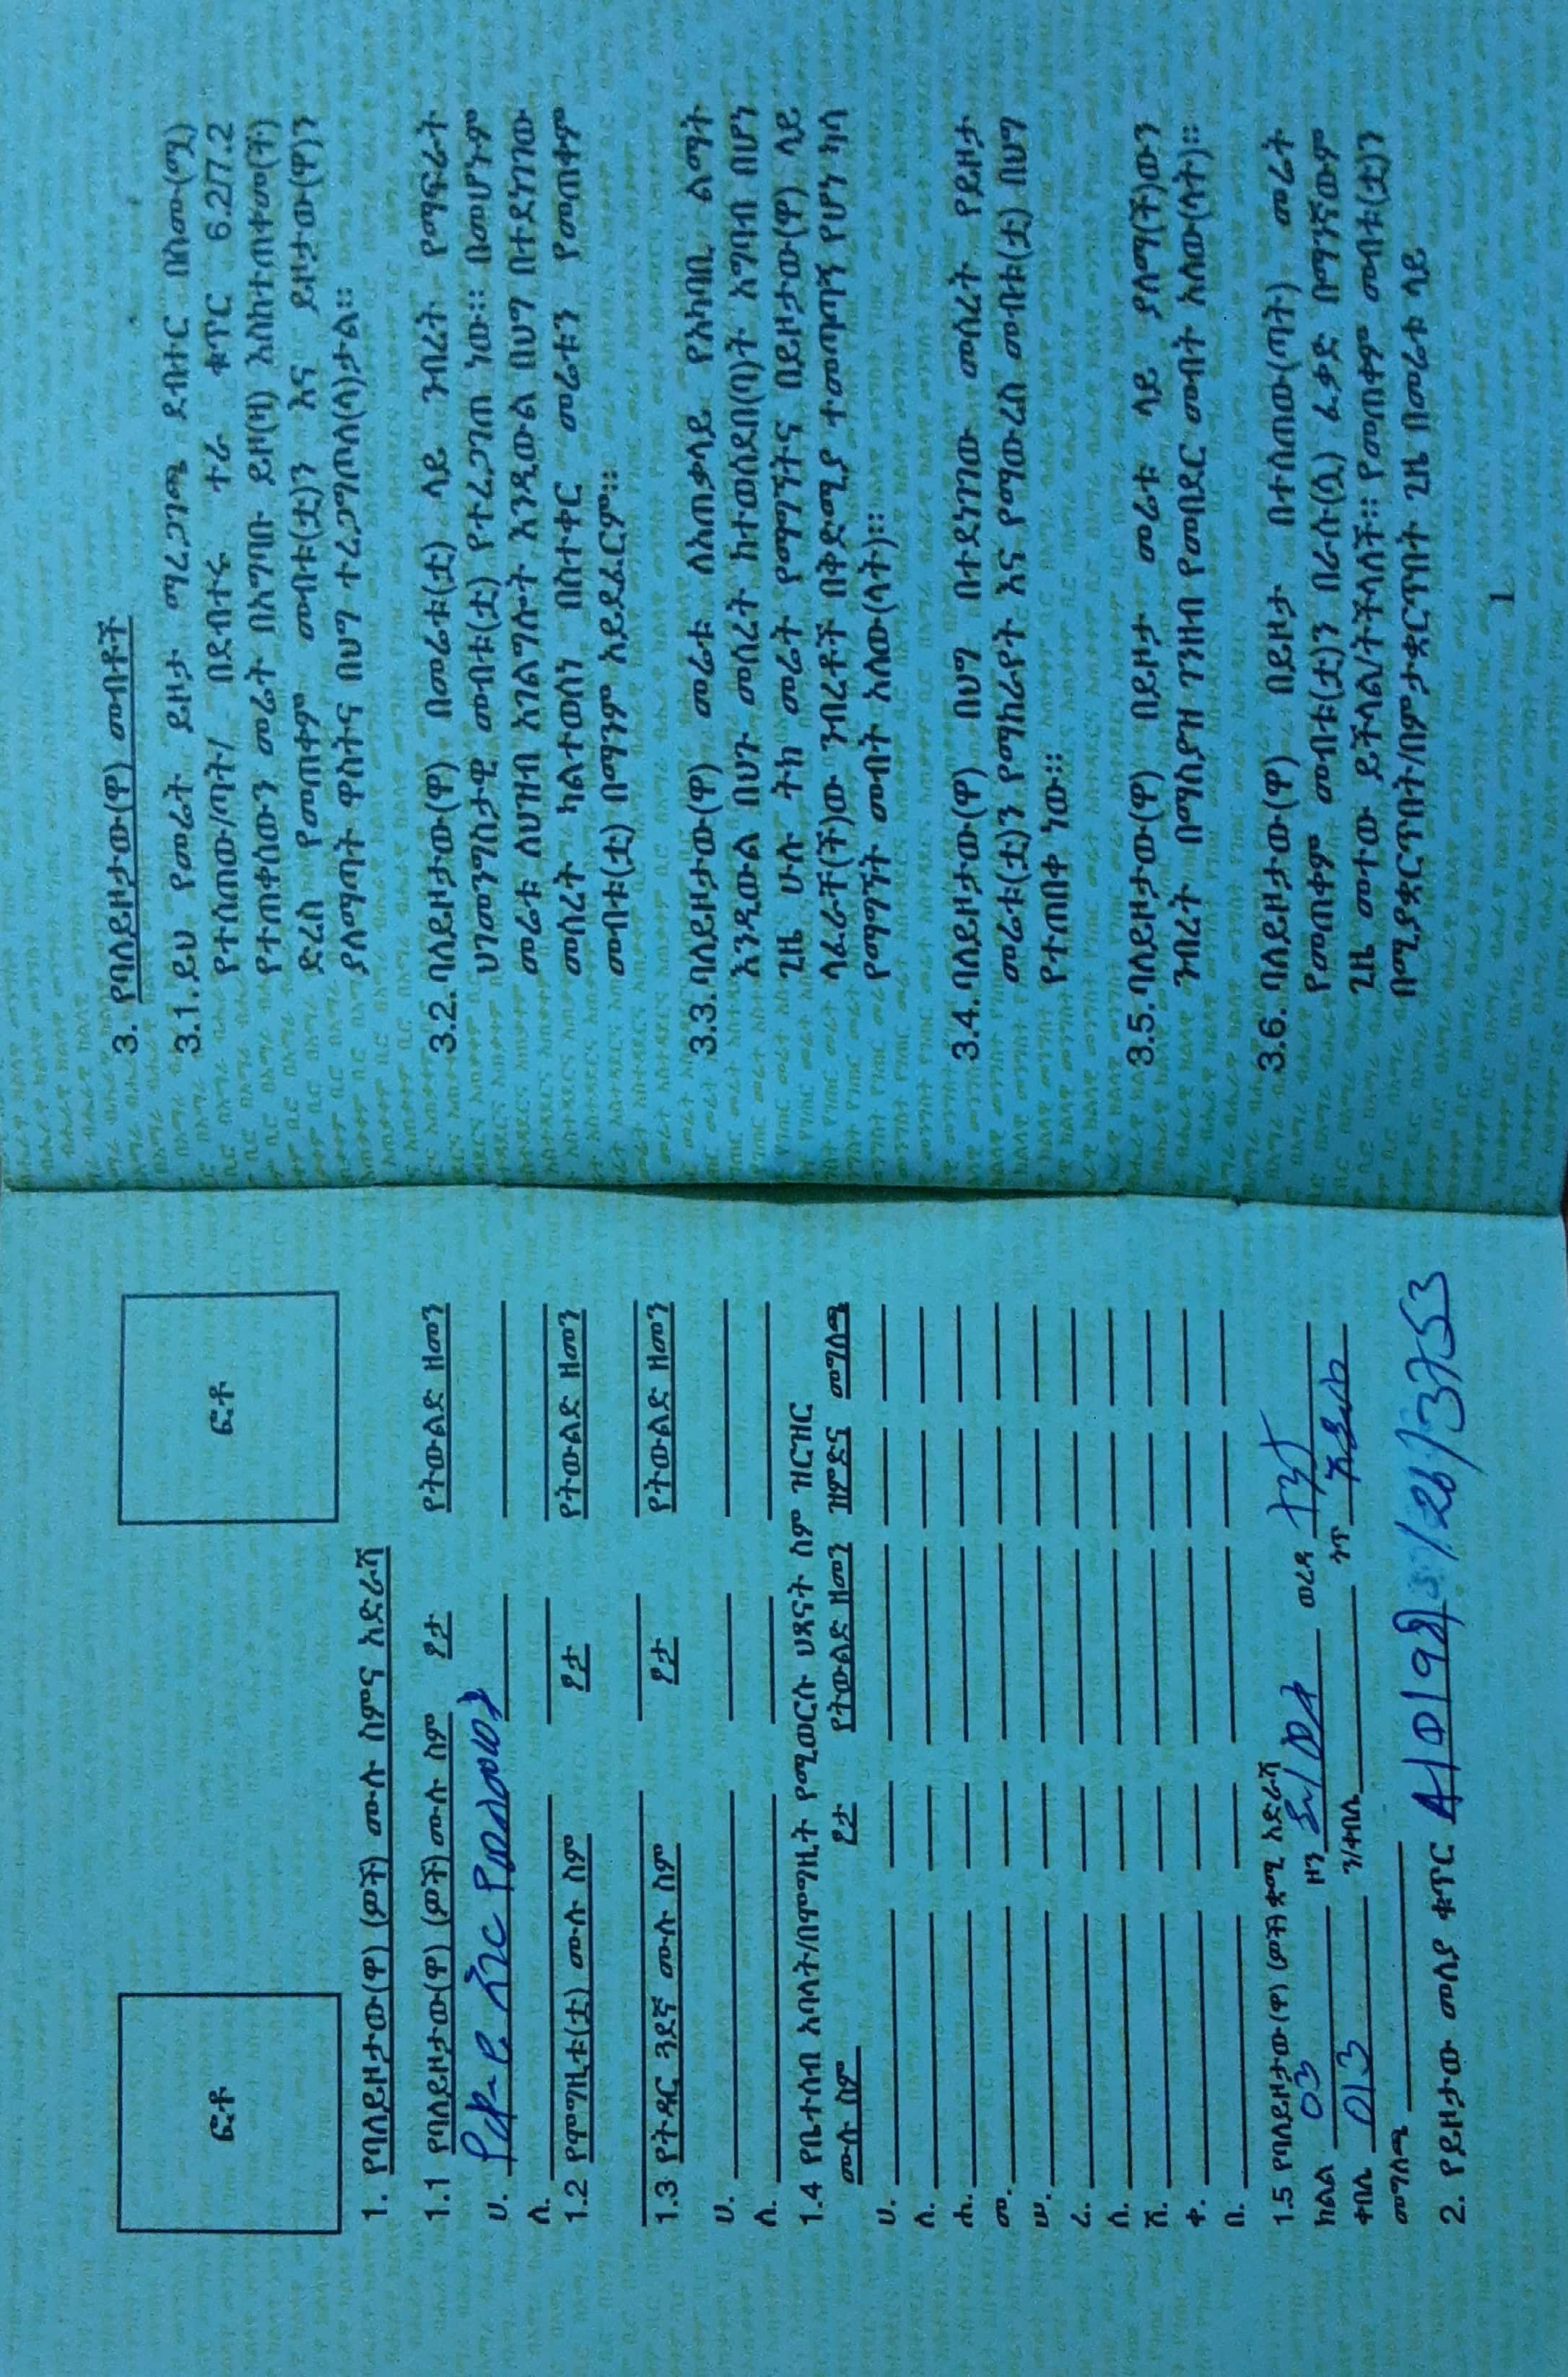 ፎቶ
ፎቶ
1. የባለይዞታው(ዋ) (ዎች) ሙሉ ስምና አድራሻ
1.1 የባለይዞታው(ዋ) (ዎች) ሙሉ ስም ፆታ የትውልድ ዘመን
ሀ.
ለ.
1.2 የሞግዚቱ(ቷ) ሙሉ ስም ፆታ የትውልድ ዘመን
1.3 የትዳር ጓደኛ ሙሉ ስም ፆታ የትውልድ ዘመን
ሀ.
ለ.
1.4 የቤተሰብ አባላት/በሞግዚት የሚወርሱ ህጻናት ስም ዝርዝር
ሙሉ ስም ፆታ የትውልድ ዘመን ዝምድና መግለጫ
ሀ.
ለ.
ሐ.
መ.
ሠ.
ረ.
ሰ.
ሸ.
ቀ.
በ.
1.5 የባለይዞታው(ዋ) (ዎች) ቋሚ አድራሻ
ክልል 03 ዞን ወረዳ
ቀበሌ 013 ን/ቀበሌ ጎጥ
መግለጫ
2. የይዞታው መለያ ቁጥር
3. የባለይዞታው(ዋ) መብቶች
3.1. ይህ የመሬት ይዞታ ማረጋገጫ ደብተር በስሙ(ሟ)
የተሰጠው/ጣት/ በደብተሩ ተራ ቁጥር 6.27.2
የተጠቀሰውን መሬት በአግባቡ ይዞ(ዛ) እስከተጠቀመ(ች)
ድረስ የመጠቀም መብቱ(ቷ)ን እና ይዞታው(ዋ)ን
ያለማጣት ዋስትና በህግ ተረጋግጦለ(ላ)ታል።
3.2. ባለይዞታው(ዋ) በመሬቱ(ቷ) ላይ ንብረት የማፍራት
ህገመንግስታዊ መብቱ(ቷ) የተረጋገጠ ነው። በመሆኑም
መሬቱ ለህዝብ አገልግሎት እንዲውል በህግ በተደነገገው
መሰረት ካልተወሰነ በስተቀር መሬቱን የመጠቀም
መብቱ(ቷ) በማንም አይደፈርም።
3.3. ባለይዞታው(ዋ) መሬቱ ለአጠቃላይ የአካባቢ ልማት
እንዲውል በህጉ መሰረት ከተወሰደበ(ባ)ት አግባብ በሆነ
ጊዜ ሁሉ ትክ መሬት የማግኘትና በይዞታው(ዋ) ላይ
ላፈራቸ(ች)ው ንብረቶች በቅድሚያ ተመጣጣኝ የሆነ ካሳ
የማግኘት መብት አለው(ላት)።
3.4. ባለይዞታው(ዋ) በህግ በተደነገገው መሰረት የይዞታ
መሬቱ(ቷ)ን የማከራየት እና የማውረስ መብቱ(ቷ) በህግ
የተጠበቀ ነው።
3.5. ባለይዞታው(ዋ) በይዞታ መሬቱ ላይ ያለማ(ች)ውን
ንብረት በማስያዝ ገንዘብ የመበደር መብት አለው(ላት)።
3.6. ባለይዞታው(ዋ) በይዞታ በተሰጠው(ጣት) መሬት
የመጠቀም መብቱ(ቷ)ን በራሱ(ሷ) ፈቃድ በማንኛውም
ጊዜ መተው ይችላል/ትችላለች። የመጠቀም መብቱ(ቷ)ን
በሚያቋርጥበት/በምታቋርጥበት ጊዜ በመሬቱ ላይ
1